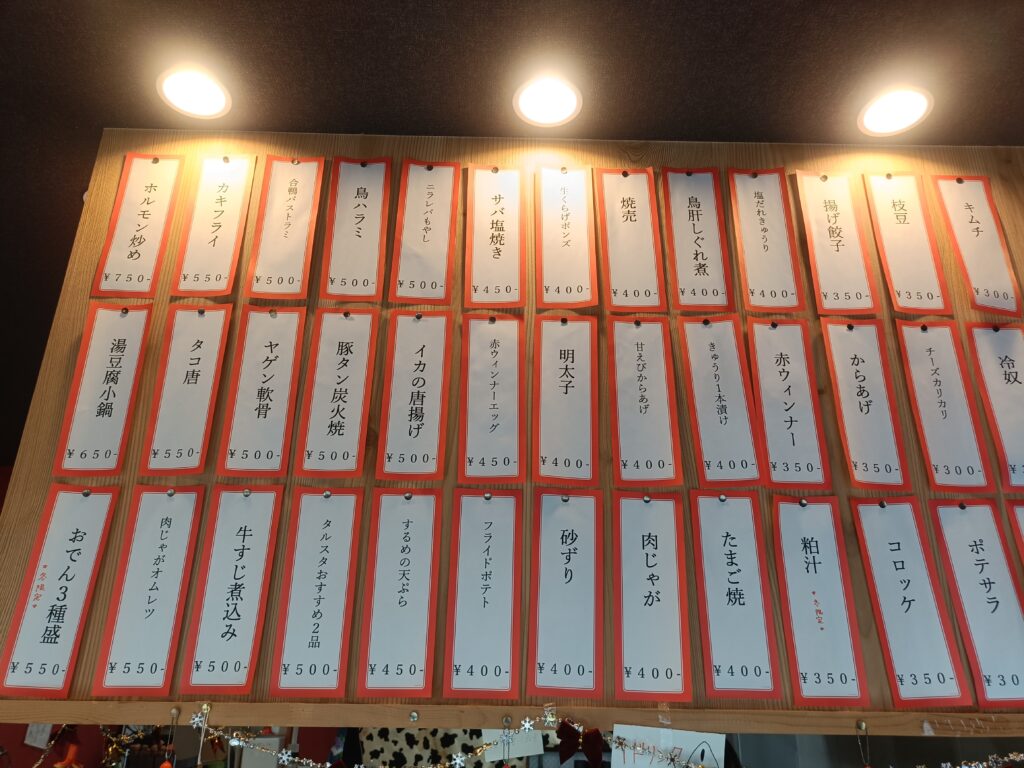 ホルモン炒め
¥750-
カキフライ
¥550-
合鴨パストラミ
¥500-
鳥ハラミ
¥500-
ニラレバもやし
¥500-
サバ塩焼き
¥450-
牛くらげポンズ
¥400-
焼売
¥400-
鳥肝しぐれ煮
¥400-
塩だれきゅうり
¥400-
揚げ餃子
¥350-
枝豆
¥350-
キムチ
¥300-
湯豆腐小鍋
¥650-
タコ唐
¥550-
ヤゲン軟骨
¥500-
豚タン炭火焼
¥500-
イカの唐揚げ
¥500-
赤ウィンナーエッグ
¥450-
明太子
¥400-
甘えびからあげ
¥400-
きゅうり1本漬け
¥400-
赤ウィンナー
¥350-
からあげ
¥350-
チーズカリカリ
¥300-
冷奴
おでん3種盛
冬限定
¥550-
肉じゃがオムレツ
¥550-
牛すじ煮込み
¥500-
タルスタおすすめ2品
¥500-
するめの天ぷら
¥450-
フライドポテト
¥400-
砂ずり
¥400-
肉じゃが
¥400-
たまご焼
¥400-
粕汁
冬限定
¥350-
コロッケ
¥350-
ポテサラ
¥30